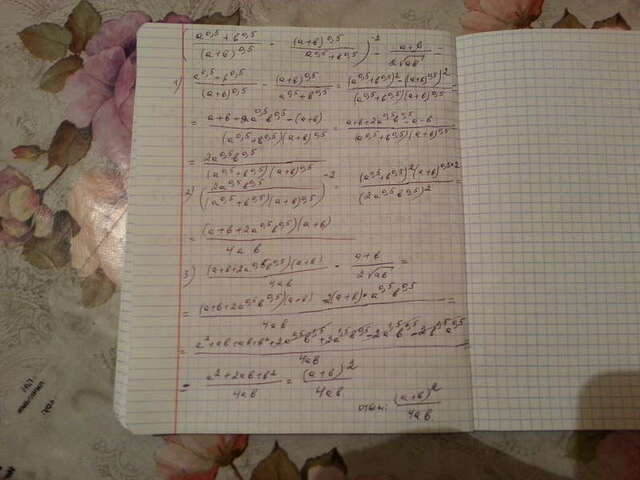 (a^0,5 + b^0,5 / (a+b)^0,5 - (a+b)^0,5 / a^0,5 + b^0,5)^-2 - a+b / 2√ab =
1) a^0,5 + b^0,5 / (a+b)^0,5 - (a+b)^0,5 / a^0,5 + b^0,5 = (a^0,5 + b^0,5)^2 - (a+b)^0,5·2 / (a^0,5 + b^0,5)(a+b)^0,5 =
= a+b+2a^0,5 b^0,5 - (a+b) / (a^0,5 + b^0,5)(a+b)^0,5 = a+b+2a^0,5 b^0,5 - a - b / (a^0,5 + b^0,5)(a+b)^0,5 =
= 2a^0,5 b^0,5 / (a^0,5 + b^0,5)(a+b)^0,5
2) (2a^0,5 b^0,5 / (a^0,5 + b^0,5)(a+b)^0,5)^-2 = (a^0,5 + b^0,5)^2 (a+b)^0,5·2 / (2a^0,5 b^0,5)^2 =
= (a+b+2a^0,5 b^0,5)(a+b) / 4ab
3) (a+b+2a^0,5 b^0,5)(a+b) / 4ab - a+b / 2√ab =
= (a+b+2a^0,5 b^0,5)(a+b) - 2(a+b)·a^0,5 b^0,5 / 4ab =
= a²+ab+ab+b²+2a^1,5 b^0,5+2a^0,5 b^1,5-2a^1,5 b^0,5-2b^1,5 a^0,5 / 4ab =
= a²+2ab+b² / 4ab = (a+b)² / 4ab
ответ: (a+b)² / 4ab